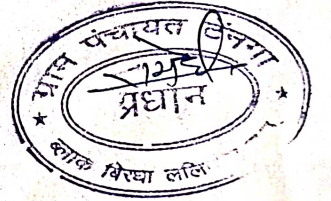 ग्राम पंचायत
प्रधान
ब्लाक बिरधा ललि